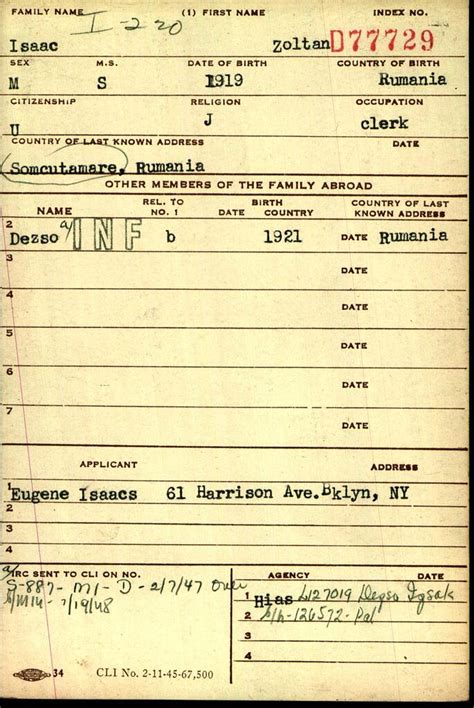 FAMILY NAME (1) FIRST NAME INDEX NO.
I-220
Isaac Zoltan D77729
SEX M.S. DATE OF BIRTH COUNTRY OF BIRTH
M S 1919 Rumania
CITIZENSHIP RELIGION OCCUPATION
U J clerk
COUNTRY OF LAST KNOWN ADDRESS DATE
Somcutamare, Rumania
OTHER MEMBERS OF THE FAMILY ABROAD
NAME REL. TO NO. 1 BIRTH DATE COUNTRY COUNTRY OF LAST KNOWN ADDRESS
2 Dezso a/ INF b 1921 DATE Rumania
3 DATE
4 DATE
5 DATE
6 DATE
7 DATE
APPLICANT ADDRESS
1 Eugene Isaacs 61 Harrison Ave. Bklyn, NY
2
3
4
a/ IRC SENT TO CLI ON NO. AGENCY DATE
S-887- M1- D- 2/7/47 over
7/19/48
1 Hias 427019 Dezso Izsak
2 126572-Pal
3
4
34 CLI No. 2-11-45-67,500